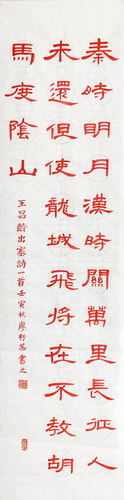 秦時明月漢時關萬里長征人
未還但使龍城飛將在不教胡
馬度陰山
王昌齡出塞詩一首壬寅秋廖行茜書之